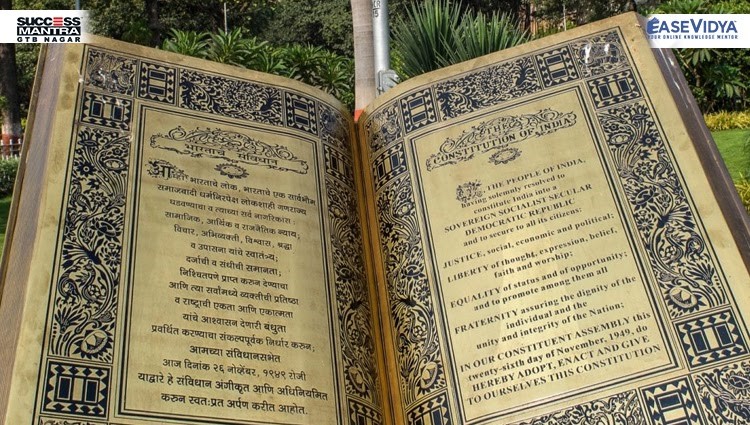 SUCCESS
MANTRA
GTB NAGAR
EASEVIDYA
YOUR ONLINE KNOWLEDGE MENTOR
भारताचे संविधान
आम्ही भारताचे लोक, भारताचे एक सार्वभौम
समाजवादी धर्मनिरपेक्ष लोकशाही गणराज्य
घडवण्याचा व त्याच्या सर्व नागरिकास:
सामाजिक, आर्थिक व राजनैतिक न्याय;
विचार, अभिव्यक्ती, विश्वास, श्रद्धा
व उपासना यांचे स्वातंत्र्य;
दर्जाची व संधीची समानता;
निश्चितपणे प्राप्त करुन देण्याचा
आणि त्या सर्वांमध्ये व्यक्तीची प्रतिष्ठा
व राष्ट्राची एकता आणि एकात्मता
यांचे आश्वासन देणारी बंधुता
प्रवर्धित करण्याचा संकल्पपूर्वक निर्धार करुन;
आमच्या संविधानसभेत
आज दिनांक २६ नोव्हेंबर, १९४९ रोजी
याद्वारे हे संविधान अंगीकृत आणि अधिनियमित
करुन स्वतःप्रत अर्पण करीत आहोत.
THE
CONSTITUTION OF INDIA
WE, THE PEOPLE OF INDIA,
having solemnly resolved to
constitute India into a
SOVEREIGN SOCIALIST SECULAR
DEMOCRATIC REPUBLIC
and to secure to all its citizens:
JUSTICE, social, economic and political;
LIBERTY of thought, expression, belief,
faith and worship;
EQUALITY of status and of opportunity;
and to promote among them all
FRATERNITY assuring the dignity of the
individual and the
unity and integrity of the Nation;
IN OUR CONSTITUENT ASSEMBLY this
twenty-sixth day of November, 1949, do
HEREBY ADOPT, ENACT AND GIVE
TO OURSELVES THIS CONSTITUTION